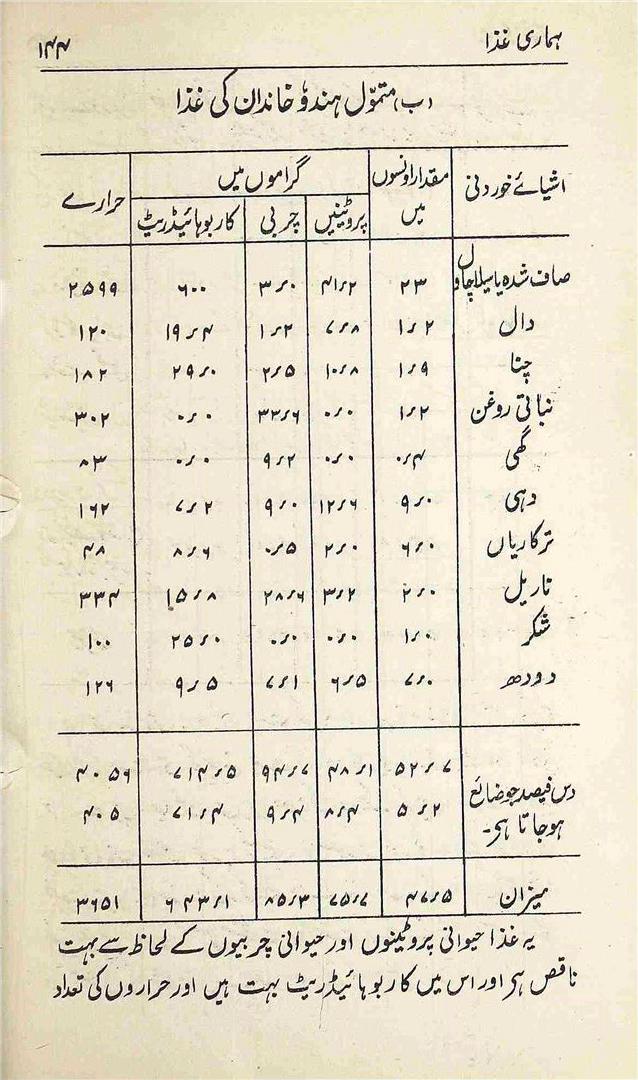 ہماری غذا ۱۴۴
(ب) متموّل ہندو خاندان کی غذا
اشیائے خوردنی مقدار اونسوں میں گراموں میں حرارے
پروٹینیں چربی کاربوہائیڈریٹ
صاف شدہ یا سیلا چاول ۲۳ ۴۱٫۲ ۳٫۰ ۶۰۰ ۲۵۹۹
دال ۱٫۲ ۷٫۸ ۱٫۲ ۱۹٫۴ ۱۲۰
چنا ۱٫۹ ۱۰٫۸ ۲٫۵ ۲۹٫۰ ۱۸۲
نباتی روغن ۱٫۲ ۰٫۰ ۳۳٫۶ ۰٫۰ ۳۰۲
گھی ۰٫۴ ۰٫۰ ۹٫۲ ۰٫۰ ۸۳
دہی ۹٫۰ ۱۲٫۶ ۹٫۰ ۷٫۲ ۱۶۲
ترکاریاں ۶٫۰ ۲٫۰ ۰٫۵ ۸٫۶ ۴۸
ناریل ۲٫۰ ۳٫۲ ۲۸٫۶ ۱۵٫۸ ۳۳۴
شکر ۱٫۰ ۰٫۰ ۰٫۰ ۲۵٫۰ ۱۰۰
دودھ ۷٫۰ ۶٫۵ ۷٫۱ ۹٫۵ ۱۲۶
۵۲٫۷ ۴۸٫۱ ۹۴٫۷ ۷۱۴٫۵ ۴۰۵۶
دس فیصد جو ضائع ۵٫۲ ۸٫۴ ۹٫۴ ۷۱٫۴ ۴۰۵
ہو جاتا ہی۔
میزان ۴۷٫۵ ۷۵٫۷ ۸۵٫۳ ۶۴۳٫۱ ۳۶۵۱
یہ غذا حیوانی پروٹینوں اور حیوانی چربیوں کے لحاظ سے بہت
ناقص ہی اور اس میں کاربوہائیڈریٹ بہت ہیں اور حراروں کی تعداد